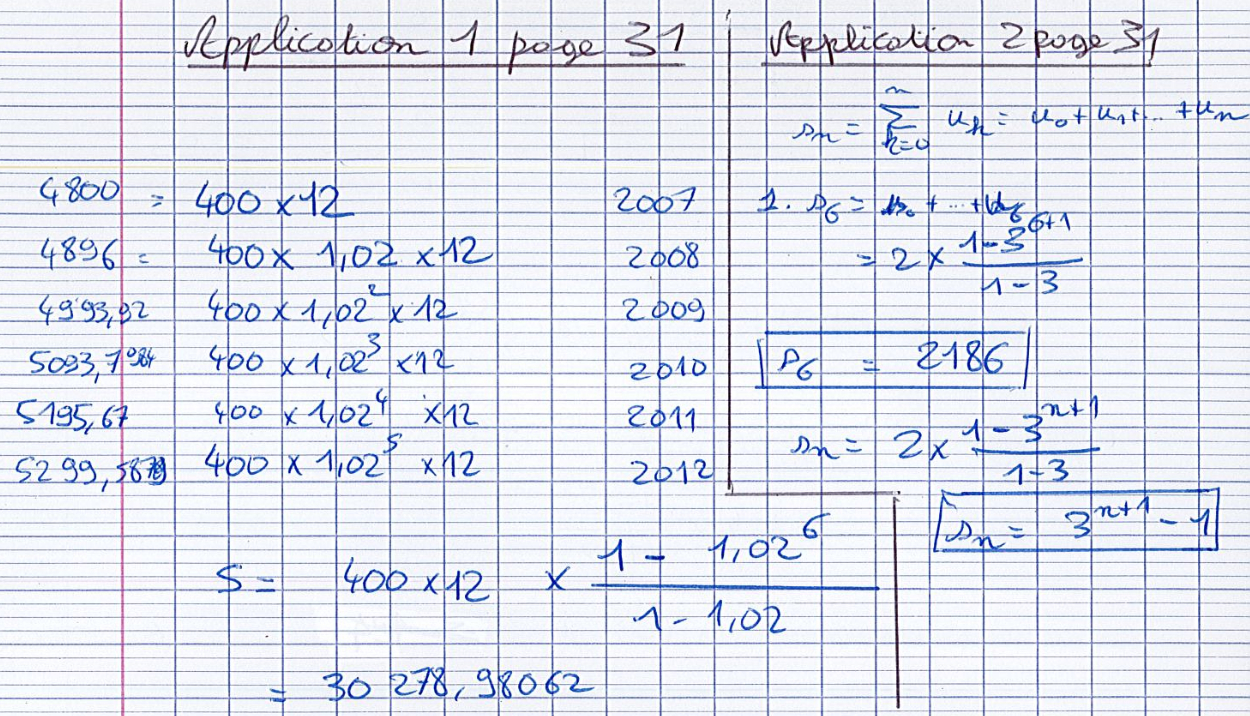 Application 1 page 31
4800 = 400 x 12 2007
4896 = 400 x 1,02 x 12 2008
4993,92 400 x 1,02² x 12 2009
5093,7984 400 x 1,02³ x 12 2010
5195,67 400 x 1,02⁴ x 12 2011
5299,587 400 x 1,02⁵ x 12 2012
S = 400 x 12 x (1 - 1,02⁶)/(1 - 1,02)
= 30 278,98062
Application 2 page 31
sₙ = ∑ₖ₌₀ⁿ uₖ = u₀ + u₁ + ... + uₙ
1. s₆ = u₀ + ... + u₆
= 2 x (1 - 3⁶⁺¹)/(1 - 3)
s₆ = 2186
sₙ = 2 x (1 - 3ⁿ⁺¹)/(1 - 3)
sₙ = 3ⁿ⁺¹ - 1